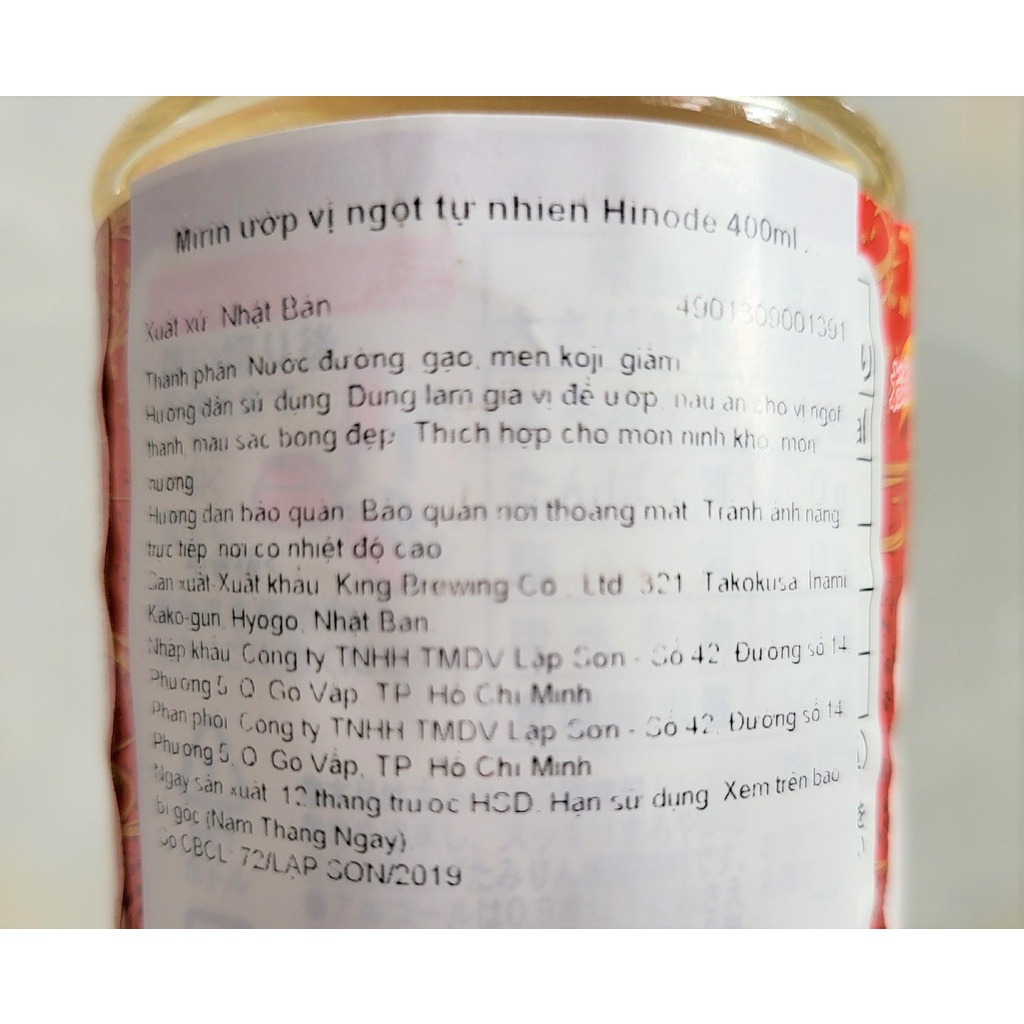 Mirin ướp vị ngọt tự nhiên Hinode 400ml .
Xuất xứ Nhật Bản 4901309001391
Thành phần Nước đường, gạo, men koji, giấm
Hướng dẫn sử dụng Dùng làm gia vị để ướp, nấu ăn cho vị ngọt
thanh, màu sắc bóng đẹp. Thích hợp cho món ninh kho, món
nướng
Hướng dẫn bảo quản Bảo quản nơi thoáng mát Tránh ánh nắng
trực tiếp, nơi có nhiệt độ cao
Sản xuất-Xuất khẩu King Brewing Co., Ltd 321, Takokusa Inami,
Kako-gun, Hyogo, Nhật Bản
Nhập khẩu Công ty TNHH TMDV Lập Sơn - Số 42, Đường số 14,
Phường 5, Q Gò Vấp, TP Hồ Chí Minh
Phân phối Công ty TNHH TMDV Lập Sơn - Số 42, Đường số 14,
Phường 5, Q Gò Vấp, TP Hồ Chí Minh
Ngày sản xuất 12 tháng trước HSD. Hạn sử dụng Xem trên bao
bì gốc (Năm Tháng Ngày)
Số CBCL: 72/LẬP SƠN/2019